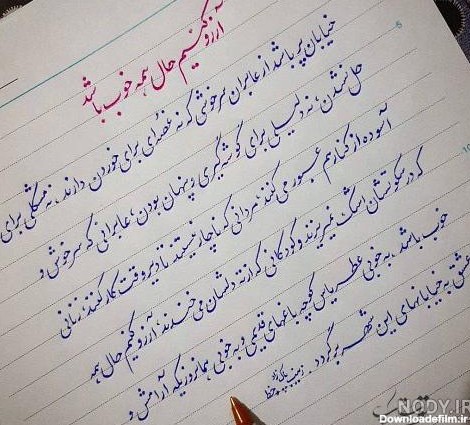 آرزو کنیم حال همه خوب باشد
خیابان پر باشد از عابران سرخوشی که نه غصه‌ای برای خوردن دارند، نه مشکلی برای
حل نشدن، نه دلیلی برای گوشه‌گیری و پنهان بودن، عابرانی که سرخوش و
آسوده از کنار هم عبور می‌کنند، مردانی که ناچار نیستند تا دیر وقت کار کنند، زنانی
که در سکوتشان اشک نمیریزند و کودکانی که از ته دلشان می‌خندند؛ آرزو کنیم حال همه
خوب باشد، به خوبی عطر یاس کوچه باغهای قدیمی و به خوبی همانروزیکه آرامش و
عشق به خیابانهای این شهر برگردد.
5
10
NODY.IR
Downloadefilm.ir